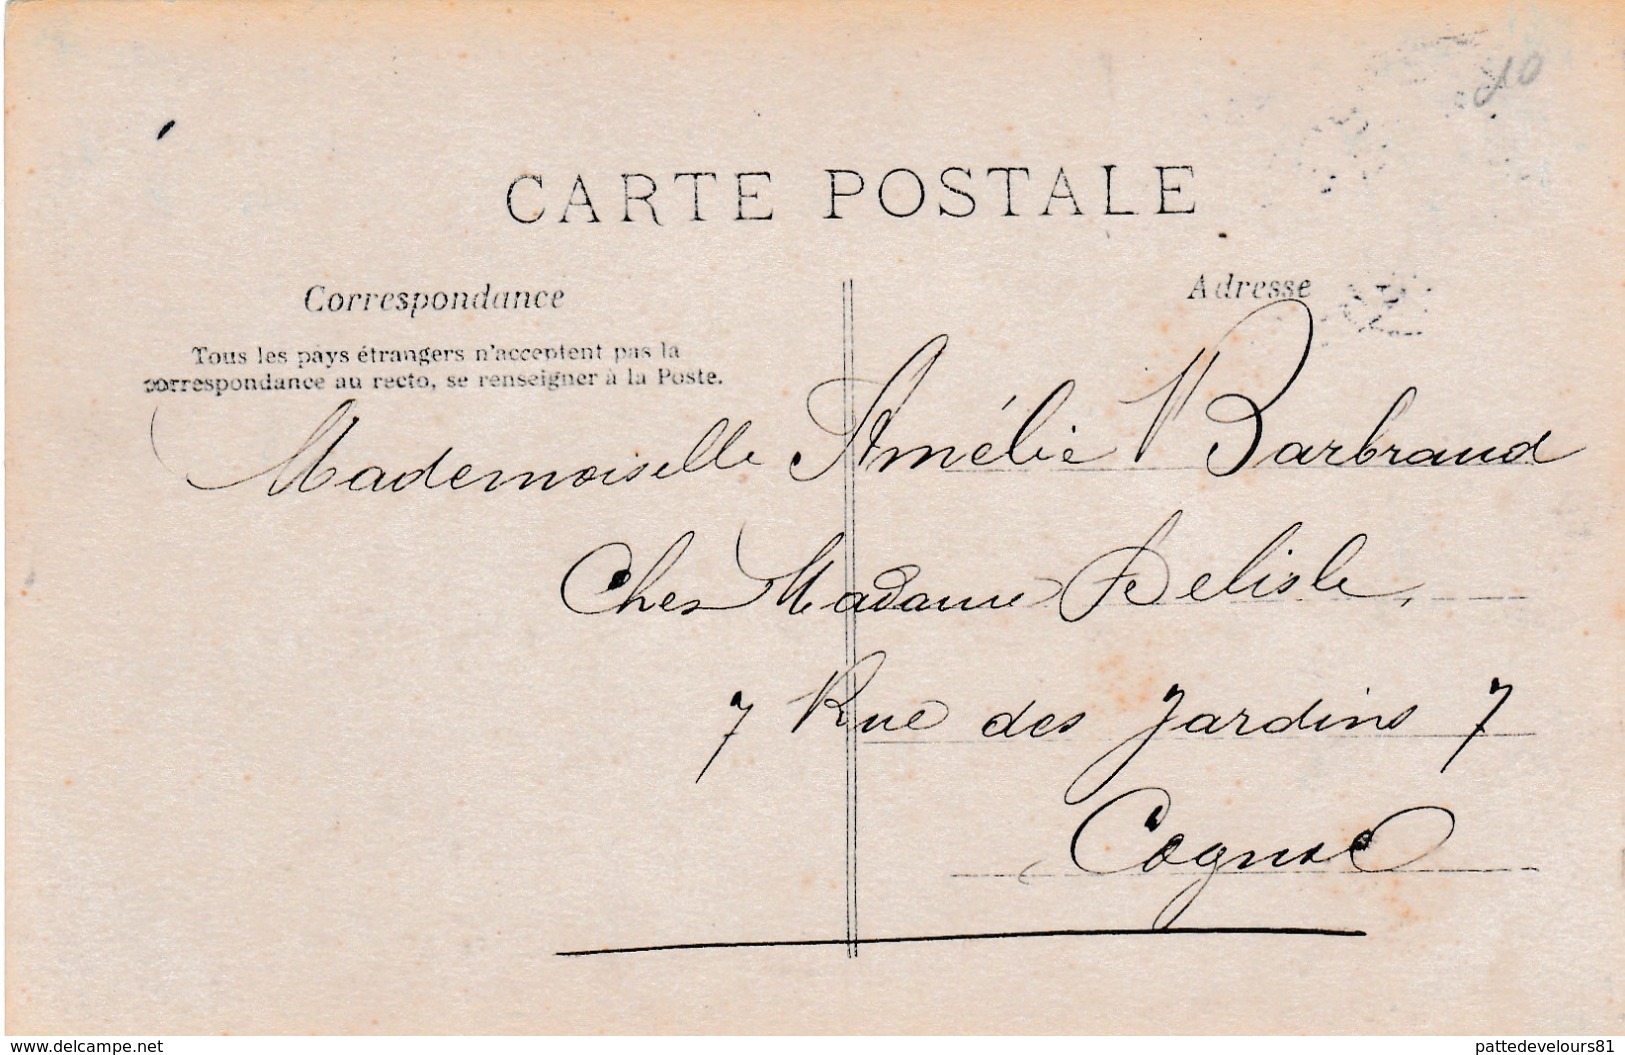 10
CARTE POSTALE
Correspondance
Adresse
Tous les pays étrangers n'acceptent pas la
correspondance au recto, se renseigner à la Poste.
Mademoiselle Amélie Barbraud
Chez Madame Delisle,
7 Rue des Jardins 7
Cognac
www.delcampe.net
pattedevelours81